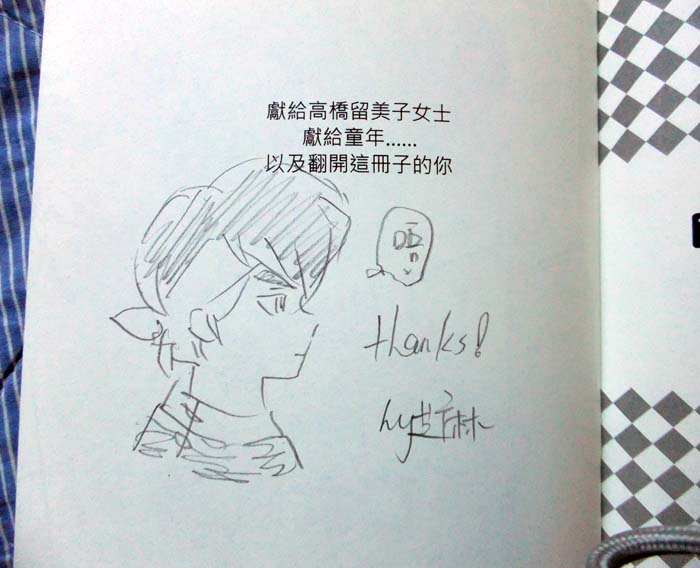 獻給高橋留美子女士
獻給童年......
以及翻開這冊子的你
thanks!
by